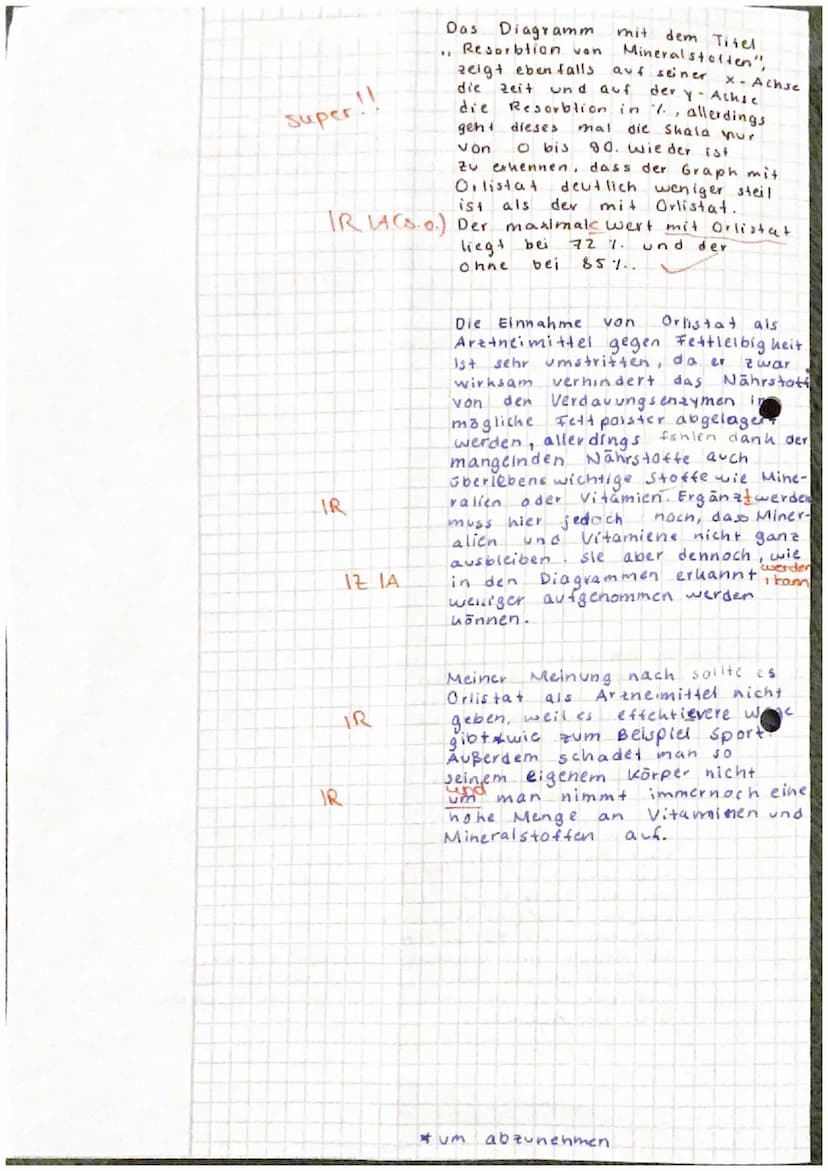 Das Diagramm mit dem Titel
„Resorbtion von Mineralstoffen",
zeigt ebenfalls auf seiner x-Achse
die Zeit und auf der y-Achse
super!! die Resorbtion in %, allerdings
geht dieses mal die Skala nur
von 0 bis 90. wieder ist
zu erkennen, dass der Graph mit
Orlistat deutlich weniger steil
ist als der mit Orlistat.
IR IA (s.o.) Der maximale Wert mit Orlistat
liegt bei 72 % und der
ohne bei 85 %..
Die Einnahme von Orlistat als
Arztneimittel gegen Fettleibigkeit
ist sehr umstritten, da er zwar
wirksam verhindert das Nährstoff
von den Verdauungsenzymen in
mögliche Fettpolster abgelagert
werden, allerdings fehlen dank der
mangelnden Nährstoffe auch
überlebenswichtige Stoffe wie Mine-
IR ralien oder Vitamien. Ergänzt werden
muss hier jedoch noch, dass Miner-
alien und Vitamiene nicht ganz
ausbleiben. sie aber dennoch, wie
IZ IA in den Diagrammen erkannt werden kann,
weniger aufgenommen werden
können.
Meiner Meinung nach sollte es
Orlistat als Arzneimittel nicht
IR geben, weil es effektievere Wege
gibt * wie zum Beispiel Sport.
Außerdem schadet man so
seinem eigenem Körper nicht
IR um und man nimmt immernoch eine
hohe Menge an Vitaminen und
Mineralstoffen auf.
* um abzunehmen